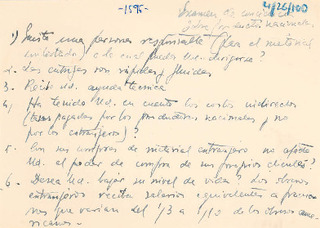 -1595-
4/26/100
Examen de conciencia
sobre productos nacionales
1) Existe una persona responsable (para el material
contestado) a la cual pueda Ud. dirigirse?
2. Las entregas son rápidas y fluidas
3. Recibe Ud. ayuda técnica
4. Ha tenido Ud. en cuenta los costos indirectos
(tasas pagadas por los productores nacionales y no
por los extranjeros)?
5. Con sus compras de material extranjero no afecta
Ud. el poder de compra de sus propios clientes?
6. Desea Ud. bajar su nivel de vida? Los obreros
extranjeros reciben salarios equivalentes a
nes que varían del 1/3 a 1/10 de los obreros ame-
ricanos.-